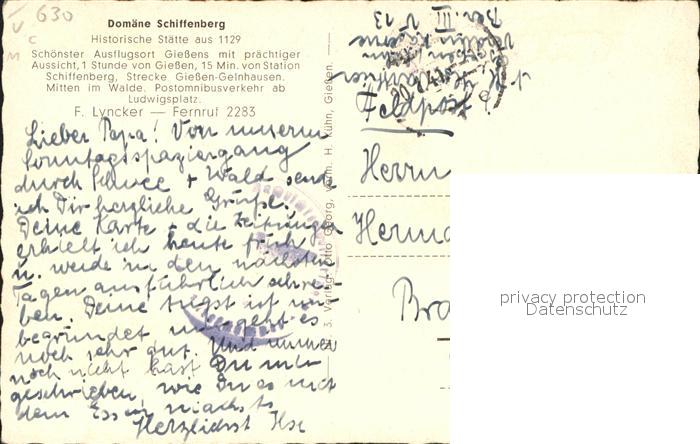 630
V
C
M
Domäne Schiffenberg
Historische Stätte aus 1129
Schönster Ausflugsort Gießens mit prächtiger
Aussicht, 1 Stunde von Gießen, 15 Min. von Station
Schiffenberg, Strecke Gießen-Gelnhausen.
Mitten im Walde. Postomnibusverkehr ab
Ludwigsplatz.
F. Lyncker — Fernruf 2283
Lieber Papa! Von unserm
Sonntagsspaziergang
durch Schnee + Wald sende
ich Dir herzliche Grüße.
Deine Karte + die Zeitungen
erhielt ich heute früh
u. werde in den nächsten
Tagen ausführlich schrei-
ben. Deine Angst ist un-
begründet mir geht es
noch sehr gut. Und immer
noch nicht hast Du mir
geschrieben, wie Du es mit
dem Essen machst.
Herzlichst Ilse
3. Verlag Otto Georg, vorm. H. Kühn, Gießen.
Feldpost
Herrn
Herma
Bra
privacy protection
Datenschutz